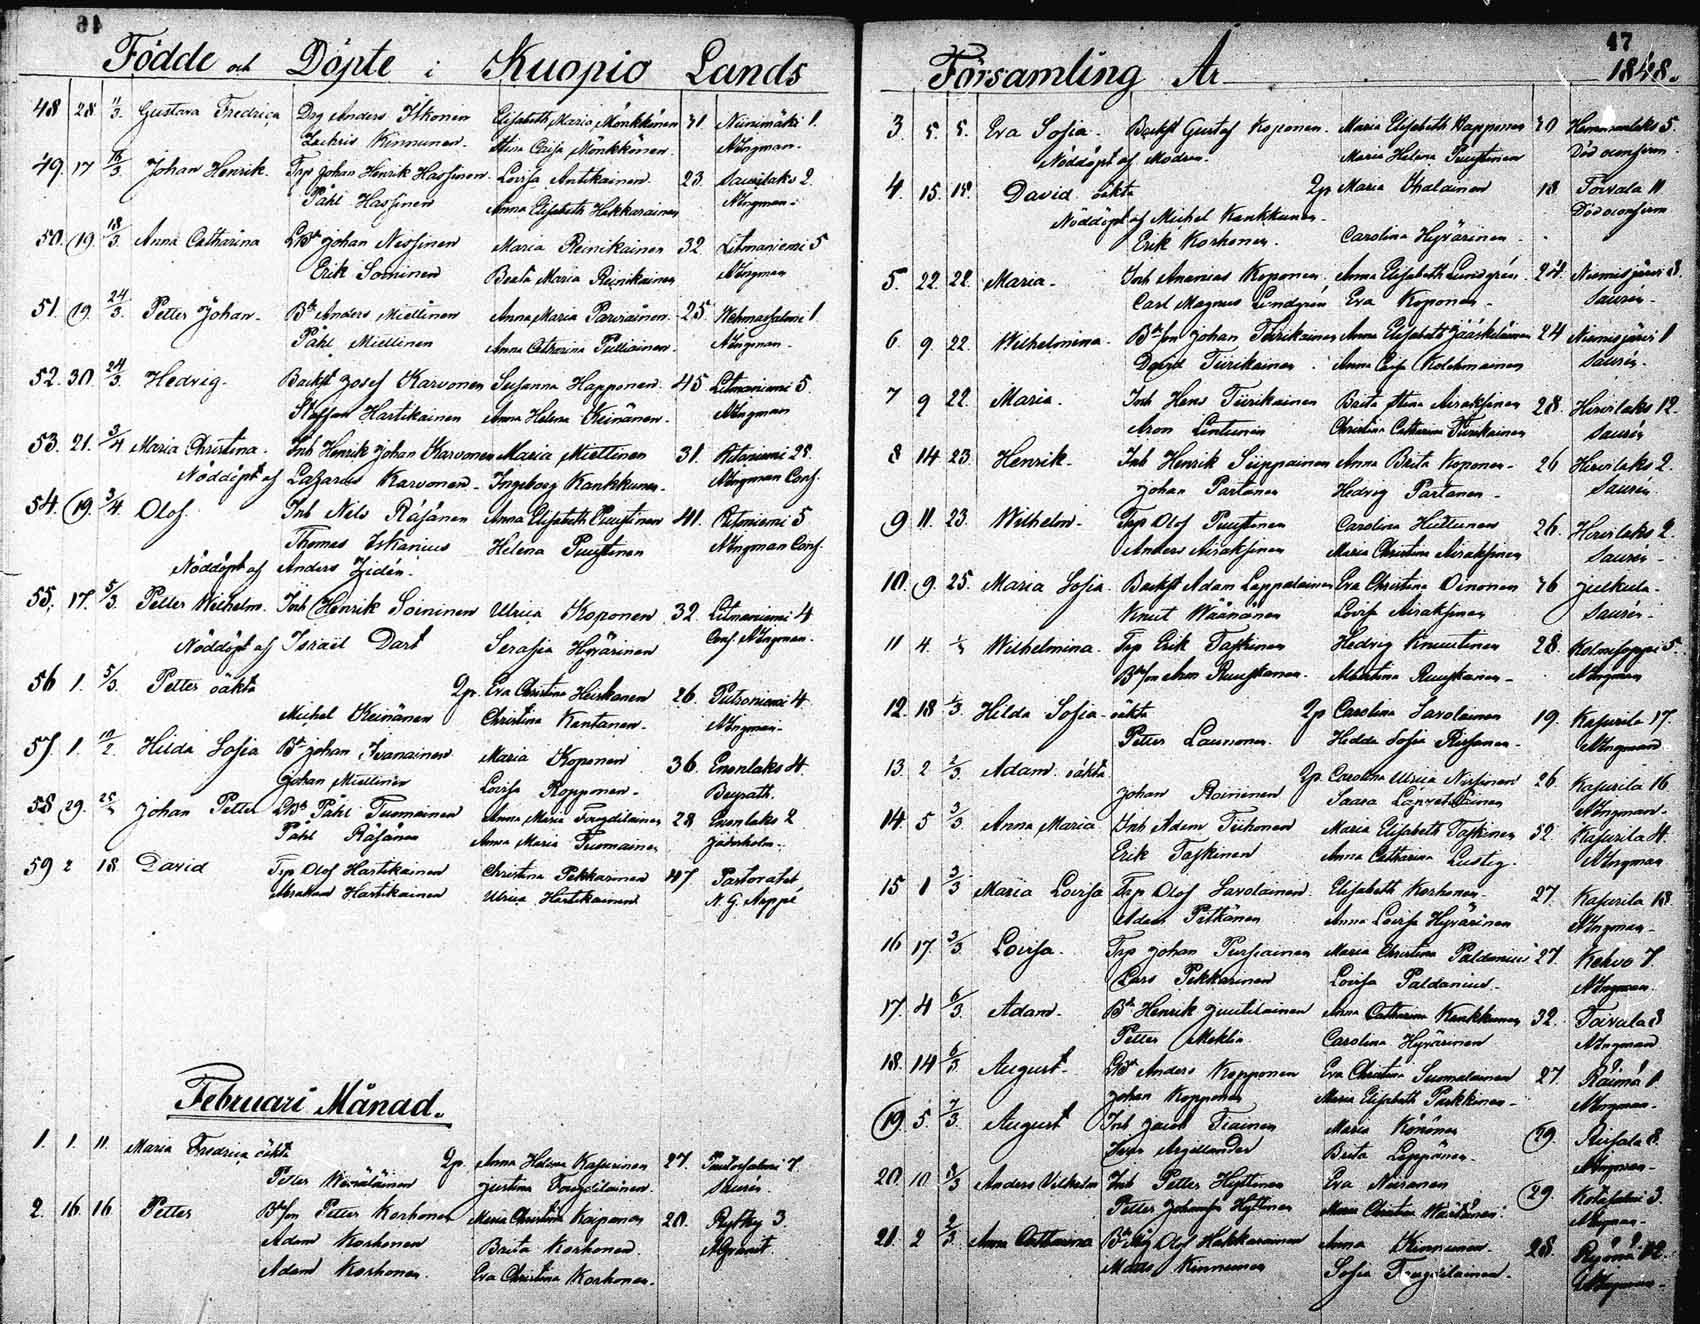 46
Födde och Döpte i Kuopio Lands
48 28 11/3. Gustava Fredrica Drg Anders Itkonen Elisabeth Maria Mönkkönen 31 Niinimäki 1.
Zachris Kinnunen. Stina Caisa Mönkkönen. NIngman.
49. 17 16/3. Johan Henrik. Trp Johan Henrik Hassinen. Lovisa Antikainen. 23. Savilaks 2.
Påhl Hassinen Anna Elisabeth Hakkarainen NIngman.
50. 19. 18/3. Anna Catharina Johan Nissinen Maria Reinikainen 32. Litmaniemi 5
Erik Soininen Beata Maria Reinikainen NIngman
51. 19. 24/3. Petter Johan. Bd Anders Miettinen Anna Maria Parviainen. 25. Wehmassalmi 1.
Påhl Miettinen Anna Catharina Tulliainen. NIngman.
52. 30. 24/3. Hedvig. Backst Josef Karvonen Susanna Happonen. 45. Litmaniemi 5.
Staffan Hartikainen Anna Helena Keinänen. NIngman
53. 21. 3/4 Maria Christina. Inh Henrik Johan Karvonen Maria Miettinen 31. Ritoniemi 28.
Nöddöpt af Lazarus Karvonen. Ingeborg Kankkunen. NIngman Conf.
54. 19. 3/4. Olof. Inh Nils Räsänen Anna Elisabeth Puustinen 41. Ritoniemi 5
Thomas Iskanius Helena Puustinen NIngman Conf.
Nöddöpt af Anders Zidén.
55. 17. 5/3. Petter Wilhelm. Inh Henrik Soininen Ulrica Koponen 32. Litmaniemi 4
Nöddöpt af Israël Dart Serafia Hyvärinen Conf. NIngman.
56 1. 5/3. Petter oäkta 2p. Eva Christina Heiskanen 26. Putroniemi 4
Michel Keinänen Christina Kantanen. NIngman.
57. 1. 12/2 Hilda Sofia Bd Johan Ivanainen Maria Koponen 36. Enonlaks 4.
Johan Miettinen Lovisa Kopponen.
58 29. Johan Petter Påhl Tuomainen Anna Maria Fougdilainen 28 Enonlaks 2
Påhl Räsänen Anna Maria Tuomainen
59 2 18. David Trp Olof Hartikainen Christina Pekkarinen 47 Pastoratet
Abraham Hartikainen Ulrica Hartikainen N. G. Arppé
Februari Månad.
1. 1. 11. Maria Fredrica oäkta 2p. Anna Helena Kasurinen 27. 7.
Petter Justina Fougdilainen. Saurén.
2. 16. 16 Petter Bdson Petter Korhonen Maria Christina Kaiponen 20. Rytky 3.
Adam Korhonen Brita Korhonen. AGranit.
Adam Korhonen. Eva Christina Korhonen.
47
Församling År 1848.
3. 5. 5. Eva Sofia. Backst Gustaf Koponen. Maria Elisabeth Kapponen 30 Hamanlaks 5.
Nöddöpt af Modren. Maria Helena Puustinen Död oconfirm.
4. 15. 18. David oäkta 2p Maria Ihalainen 18. Toivala 11
Nöddöpt af Michel Kankkunen. Död oconfirm
Erik Korhonen. Carolina Hyvärinen.
5. 22. 22. Maria. Inh Ananias Koponen. Anna Elisabeth Lundgrén. 24. Niemisjärvi 8.
Carl Magnus Lundgrén Eva Koponen. Saurén.
6. 9. 22. Wilhelmina. Bdson Johan Tiirikainen Anna Elisabeth Jääskeläinen 24 Niemisjärvi 1
David Tiirikainen. Anna Caisa Kolehmainen Saurén.
7 9 22. Maria. Inh Hens Tiirikainen Brita Stina Airaksinen 28. Hirvilaks 12.
Aron Lintunen Christina Catharina Tiirikainen Saurén
8 14 23. Henrik. Inh Henrik Seppainen Anna Brita Koponen. 26 Hirvilaks 2.
Johan Partanen Hedvig Partanen. Saurén.
9 11. 23. Wilhelm. Trp Olof Puustinen Carolina Huttunen 26. Hirvilaks 2.
Anders Airaksinen Maria Christina Airaksinen Saurén.
10. 9. 25. Maria Sofia. Backst Adam Lappalainen Eva Christina Oinonen 36 Julkula.
Knut Wäänänen Lovisa Airaksinen Saurén.
11 4. Wilhelmina. Trp Erik Taskinen Hedvig Knuutinen 28. Kolmisoppi 5.
Bdson Aron Ruuskanen. Albertina Ruuskanen. NIngman
12. 18 1/3. Hilda Sofia. oäkta 2p Carolina Savolainen 19. Kasurila 17.
Petter Launonen. Hedda Sofia Rissanen. NIngman
13. 2 2/3. Adam. oäkta 2p. Carolina Ulrica Nissinen 26. Kasurila 16
Johan Roininen Saara Lapveteläinen NIngman.
14. 5 3/3. Anna Maria Inh Adam Tiihonen Maria Elisabeth Taskinen 52. Kasurila 4.
Erik Taskinen Anna Catharina Lustig. NIngman
15 1 3/3 Maria Lovisa Trp Olof Savolainen. Elisabeth Korhonen. 27. Kasurila 13.
Adam Pitkänen Anna Lovisa Hyvärinen NIngman.
16 17. 3/3. Lovisa. Trp Johan Pursiainen Maria Christina Paldanius 27. Kehvo 7
Lars Pekkarinen Lovisa Paldanius. NIngman.
17. 4 6/3. Adam. Bd Henrik Juutilainen Anna Catharina Kankkunen 32. Toivala 3
Petter Miklin Carolina Hyvärinen NIngman
18. 14 6/3. August. Anders Kopponen Eva Christina Suomalainen 27. Räimä 1.
Johan Kopponen Maria Elisabeth Parkkinen. NIngman.
19. 5 7/3. August Inh Jacob Tiainen Maria Könönen 29.
Argillander Brita Leppänen. NIngman.
20. 10 8/3 Anders Vilhelm Inh Petter Hyttinen Eva Nousonen 29. Kotasalmi 3.
Petter Johansson Hyttinen Maria Christina NIngman.
21. 2 9/3. Anna Catharina Olof Hakkarainen Anna Kinnunen. 28. Ryönä 12.
Matts Kinnunen Sofia Fougdilainen. NIngman.